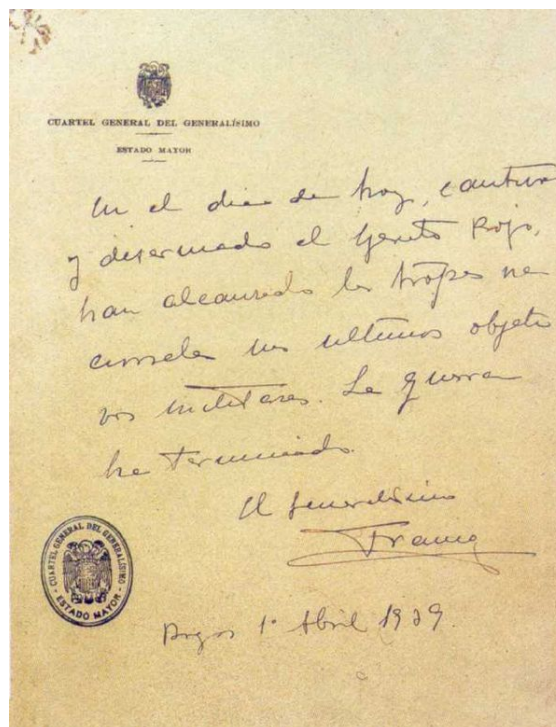 CUARTEL GENERAL DEL GENERALÍSIMO
ESTADO MAYOR
En el dia de hoy, cautivo
y desarmado el Ejercito Rojo,
han alcanzado las tropas na
cionales sus ultimos objeti
vos militares. La guerra
ha terminado.
El Generalisimo
Franco
Burgos 1º Abril 1939.
CUARTEL GENERAL DEL GENERALISIMO
- ESTADO MAYOR -